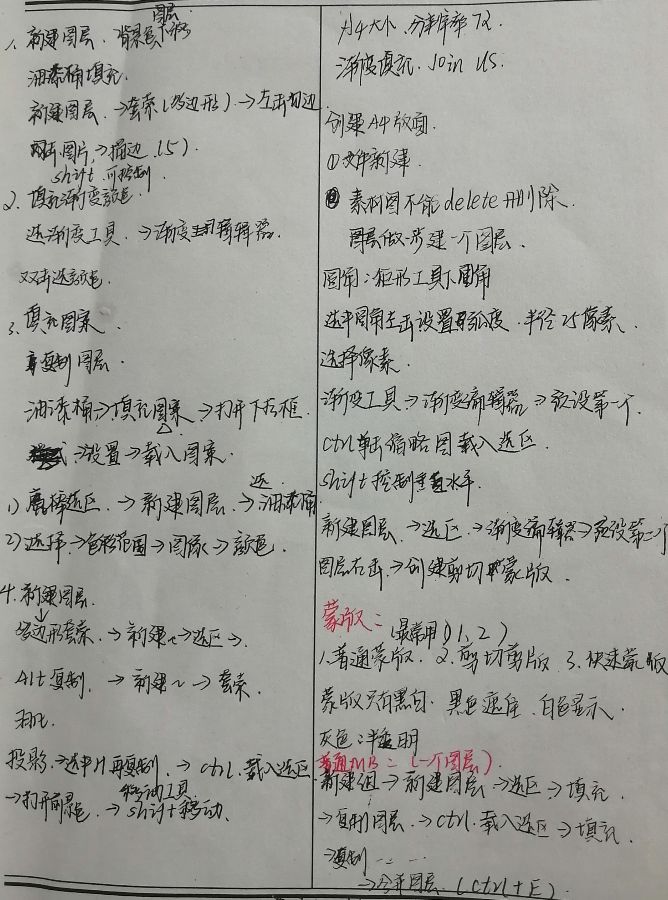 图层
1. 新建图层. 背景色下移
油漆桶填充.
新建图层. →套索(多边形)→左击切边
双击图片,→描边.(5)
shift 可控制
2. 填充渐变颜色
选渐变工具. →渐变编辑器.
双击选颜色.
3. 填充图案.
复制图层.
油漆桶→填充图案→打开下拉框.
→设置→载入图案.
选
1) 魔棒选区. →新建图层→油漆桶
2) 选择→色彩范围→图像→颜色.
4. 新建图层.
↓
多边形套索. →新建~→选区→.
Alt复制. →新建~→套索.
投影→选中再复制. →ctrl.载入选区
移动工具.
→打开前景色. →shift移动.
A4大小. 分辨率72.
渐变填充. Join us.
创建A4版面.
①文件新建.
② 素材图不能delete删除.
图层做一步建一个图层.
圆角:矩形工具下圆角
选中圆角左击设置弧度. 半径25像素.
选择像素.
渐变工具→渐变编辑器→预设第一个.
ctrl单击缩略图载入选区.
shift控制垂直水平.
新建图层. →选区. →渐变编辑器→预设第二个
图层右击.→创建剪切蒙版.
蒙版:
(最常用)(1,2)
1.普通蒙版. 2.剪切剪版. 3.快速蒙版
蒙版只有黑白. 黑色遮住. 白色显示.
灰色:半透明
普通MB:(一个图层).
新建组→新建图层→选区→填充.
→复制图层.→ctrl.载入选区→填充.
→复制 ... ...
→合并图层.(ctrl+E).